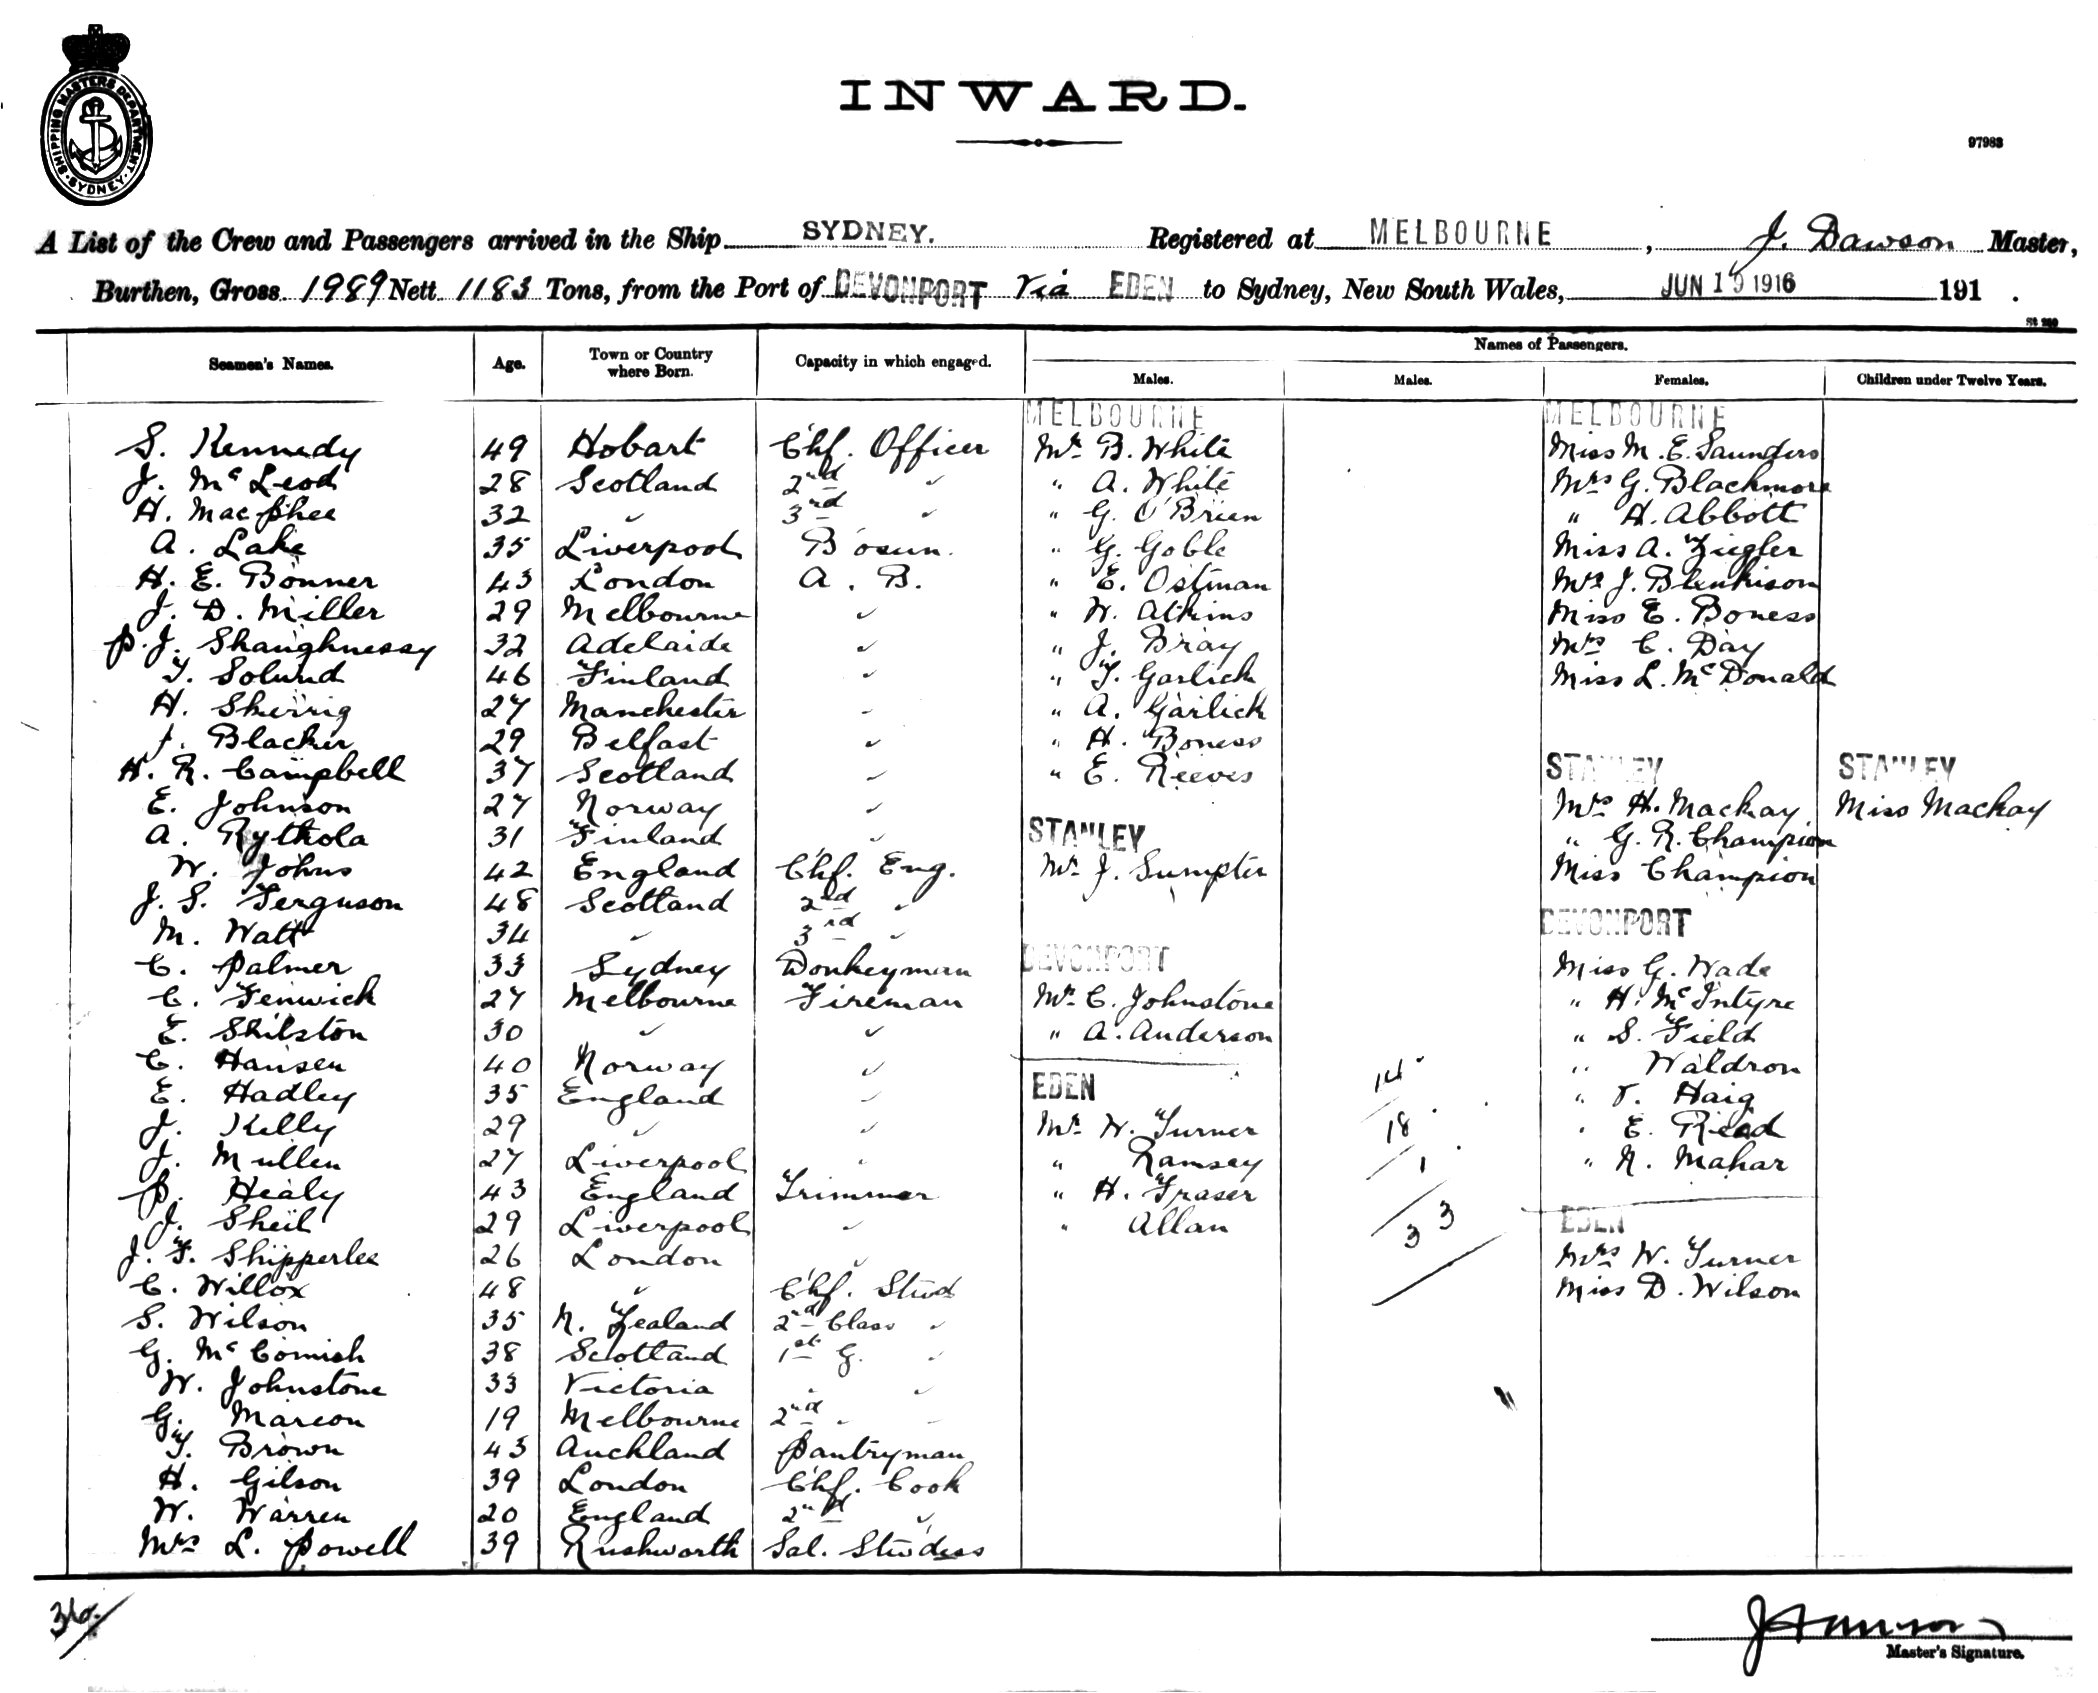 SHIPPING MASTERS DEPARTMENT. SYDNEY.
INWARD.
97983
A List of the Crew and Passengers arrived in the Ship SYDNEY. Registered at MELBOURNE, J. Dawson Master,
Burthen, Gross 1989 Nett 1183 Tons, from the Port of DEVONPORT Via EDEN to Sydney, New South Wales, JUN 19 1916 191 .
Seamen's Names. Age. Town or Country where Born. Capacity in which engaged. Names of Passengers.
Males. Males. Females. Children under Twelve Years.
MELBOURNE MELBOURNE
S. Kennedy 49 Hobart Chf. Officer Mr. B. White Miss M. E. Saunders
J. McLeod 28 Scotland 2nd " " A. White Mrs G. Blackmore
H. MacPhee 32 " 3rd " " G. O'Brien " H. Abbott
A. Lake 35 Liverpool Bosun. " G. Goble Miss A. Ziegler
H. E. Bonner 43 London A. B. " E. Ostman Mrs J. Blenkison
J. D. Miller 29 Melbourne " " W. Atkins Miss E. Boness
P. J. Shaughnessy 32 Adelaide " " J. Bray Mrs C. Day
T. Solund 46 Finland " " T. Garlick Miss L. McDonald
H. Sherrig 27 Manchester " " A. Garlick
J. Blacker 29 Belfast " " H. Boness
H. R. Campbell 37 Scotland " " E. Reeves STANLEY STANLEY
E. Johnson 27 Norway " Mrs H. Mackay Miss Mackay
A. Rythola 31 Finland " STANLEY " G. R. Champion
W. Johns 42 England Chf. Eng. Mr. J. Sumpter Miss Champion
J. S. Ferguson 48 Scotland 2nd " DEVONPORT
M. Watt 34 " 3rd " DEVONPORT
C. Palmer 33 Sydney Donkeyman Miss G. Wade
C. Fenwick 27 Melbourne Fireman Mr. C. Johnstone " H. McIntyre
E. Shilston 30 " " " A. Anderson " S. Field
C. Hansen 40 Norway " 14 " Waldron
E. Hadley 35 England " EDEN " Haig
J. Kelly 29 " " Mr. W. Turner 18 " E. Read
J. Mullen 27 Liverpool " " Ramsey 1 " N. Mahar
P. Healy 43 England Trimmer " H. Fraser
J. Sheil 29 Liverpool " " Allan 33 EDEN
J. F. Shipperlee 26 London " Mrs W. Turner
C. Willox 48 " Chf. Stwd Miss D. Wilson
S. Wilson 35 N. Zealand 2nd Class "
G. McCornish 38 Scotland 1st G. "
W. Johnstone 33 Victoria " "
G. Marson 19 Melbourne 2nd " "
T. Brown 43 Auckland Pantryman
H. Gilson 39 London Chf. Cook
W. Warren 20 England 2nd "
Mrs L. Powell 39 Rushworth Sal. Stwdess
36
Master's Signature.